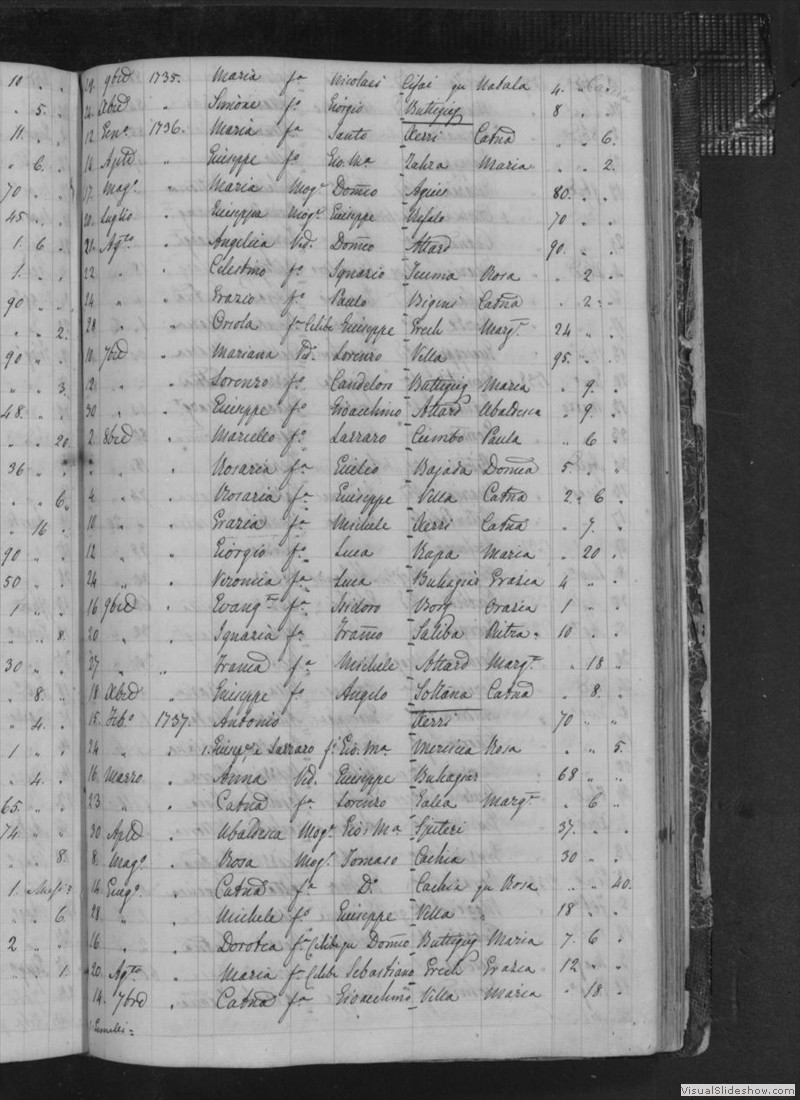 10 " .
" 5. "
11. " .
" 6. "
70 " "
45 " "
1. 6 .
1. " .
90 " "
" " 2.
90 " "
" " 3.
48. " "
" " 20.
36 " "
" " 6.
" 16 .
90 " "
50 " .
1 " "
" " 8.
30 " "
" 8. "
" 4. "
1 " "
" 4. "
65. " "
74 " "
" " 8.
1.
" " 6
2 " "
" " 1.
29. 9brê 1735. Maria fa Nicolai qm Natala 4. "
Xbrê " Simone fo Giorgio Buttigig 8 " .
12 Genº. 1736. Maria fa Santo Xerri Catnā " " 6.
Aplê " Giuseppe fo Gio. Ma Zahra Maria " " 2.
17. Magº. " Maria Mogº Domco Agius 80. " .
20. Luglio " Giuseppa Mogº Giuseppe 70 " .
21. Agto. " Angelica Vid. Domco Attard 90. " .
22 " " Celestino fo Ignazio Teuma Rosa " 2 "
24 " " Grazio fo Paulo Catnā " 2 "
28 " " Orsola fa Celibe Giuseppe Grech Margta. 24 " "
10. 7brê " Mariana Vda. Lorenzo Villa 95. " .
12. " " Lorenzo fo Candeloro Buttigig Maria " 9. "
30 " " Giuseppe fo Gioacchino Attard Ubaldesca " 9. "
2. 8brê " Marcello fo Lazzaro Cumbo Paula " 6 "
" " " Rosaria fa Giulio Bajada Domca 5. " "
4 " " Rosaria fa Giuseppe Villa Catnā 2. 6 .
10 " " Grazia fa Michele Xerri Catnā " 7. "
12 " " Giorgio fo Luca Rapa Maria " 20 "
24 " " Veronica fa Luca Buhagiar Grazia 4 " "
16 9brê " Evangta fa Isidoro Borg Orazia 1 " "
20 " " Ignazia fa Franco Saliba Pietra. 10 . .
27 " " Franca fa Michele Attard Margta. " 18 "
18 Xbrê " Giuseppe fo Angelo Soltana Catnā " 8. "
15. Febº 1737. Antonio Xerri 70 " "
24 " " 1. Giuseppe e Lazzaro fi Gio. Ma Mercieca Rosa " " 5.
16. Marzo " Anna Vid. Giuseppe Buhagiar 68 " "
23 " " Catnā fa Lorenzo Galea Margta " 6 "
30 Aplê " Ubaldesca Mogº. Gio. Ma Spiteri 37. " .
8. Magº. " Rosa Mogº. Tomaso Cachia 30 " .
16. Giugº. " Catnā fa Dº. Cachia qm Rosa " " 40.
28 " " Michele fo Giuseppe Villa " 18 " .
16 " " Dorotea fa Celibe qm Domco Buttigig Maria 7. 6 .
20. Agto " Maria fa Celibe Sebastiano Grech Grazia 12 " "
14. 7brê " Catnā fa Gioacchino Villa Maria " 18. .
1. Gemelli =
VisualSlideshow.com